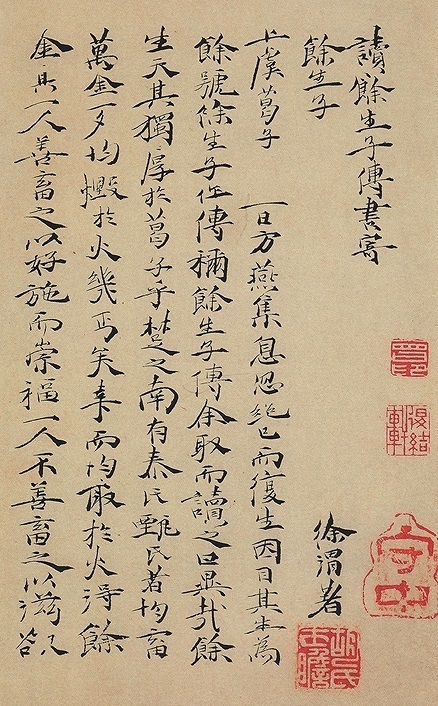 讀餘生子傳書寄
餘生子
徐渭著
上虞葛子 一日方燕集息忽絕已而復生因目其生為
餘號徐生子作傳稱餘生子傳余取而讀之曰異哉餘
生天其獨厚於葛子乎楚之南有秦氏甄氏者均畜
萬金一夕均燬於火幾丐矣幸而均取於火得餘
金焉一人善畜之以好施而崇福一人不善畜之以滋欲
守中